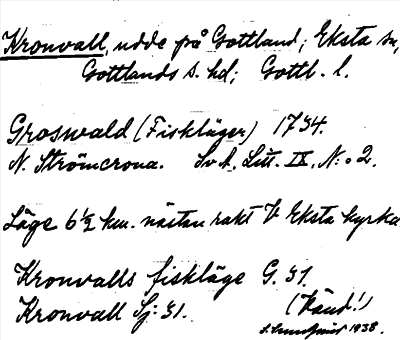 Kronvall, udde på Gottland; Eksta sn,
Gottlands s. hd; Gottl. l.
Groswald (Fiskläger) 1734.
N. Strömcrona. SvA, Litt. IX, N:o 2.
Läge 6 1/2 km. nästan rakt V Eksta kyrka
Kronvalls fiskläge G. 31.
Kronvall Sj. 31. (Känd!)
1938.